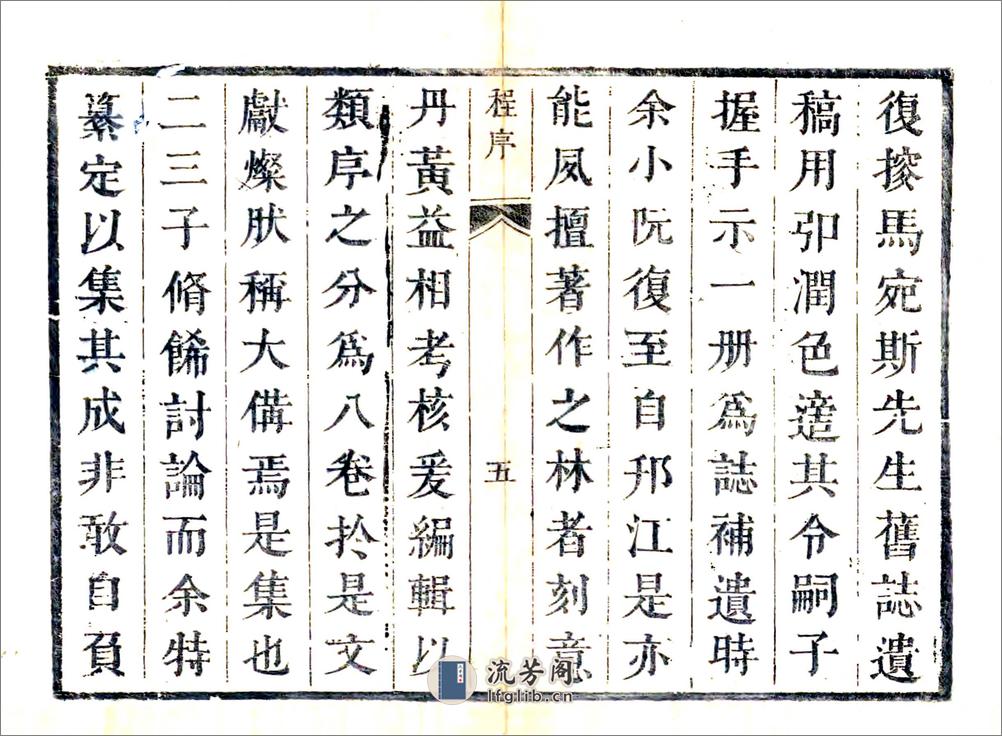 復搩馬宛斯先生舊誌遺
稿用卬潤色適其令嗣子
握手示一册為誌補遺時
余小阮復至自邗江是亦
能夙擅著作之林者刻意
程序
五
丹黃益相考核爰編輯以
類序之分為八卷於是文
獻燦肰稱大備焉是集也
二三子脩餙討論而余特
纂定以集其成非敢自負
流芳阁
lfglib.cn